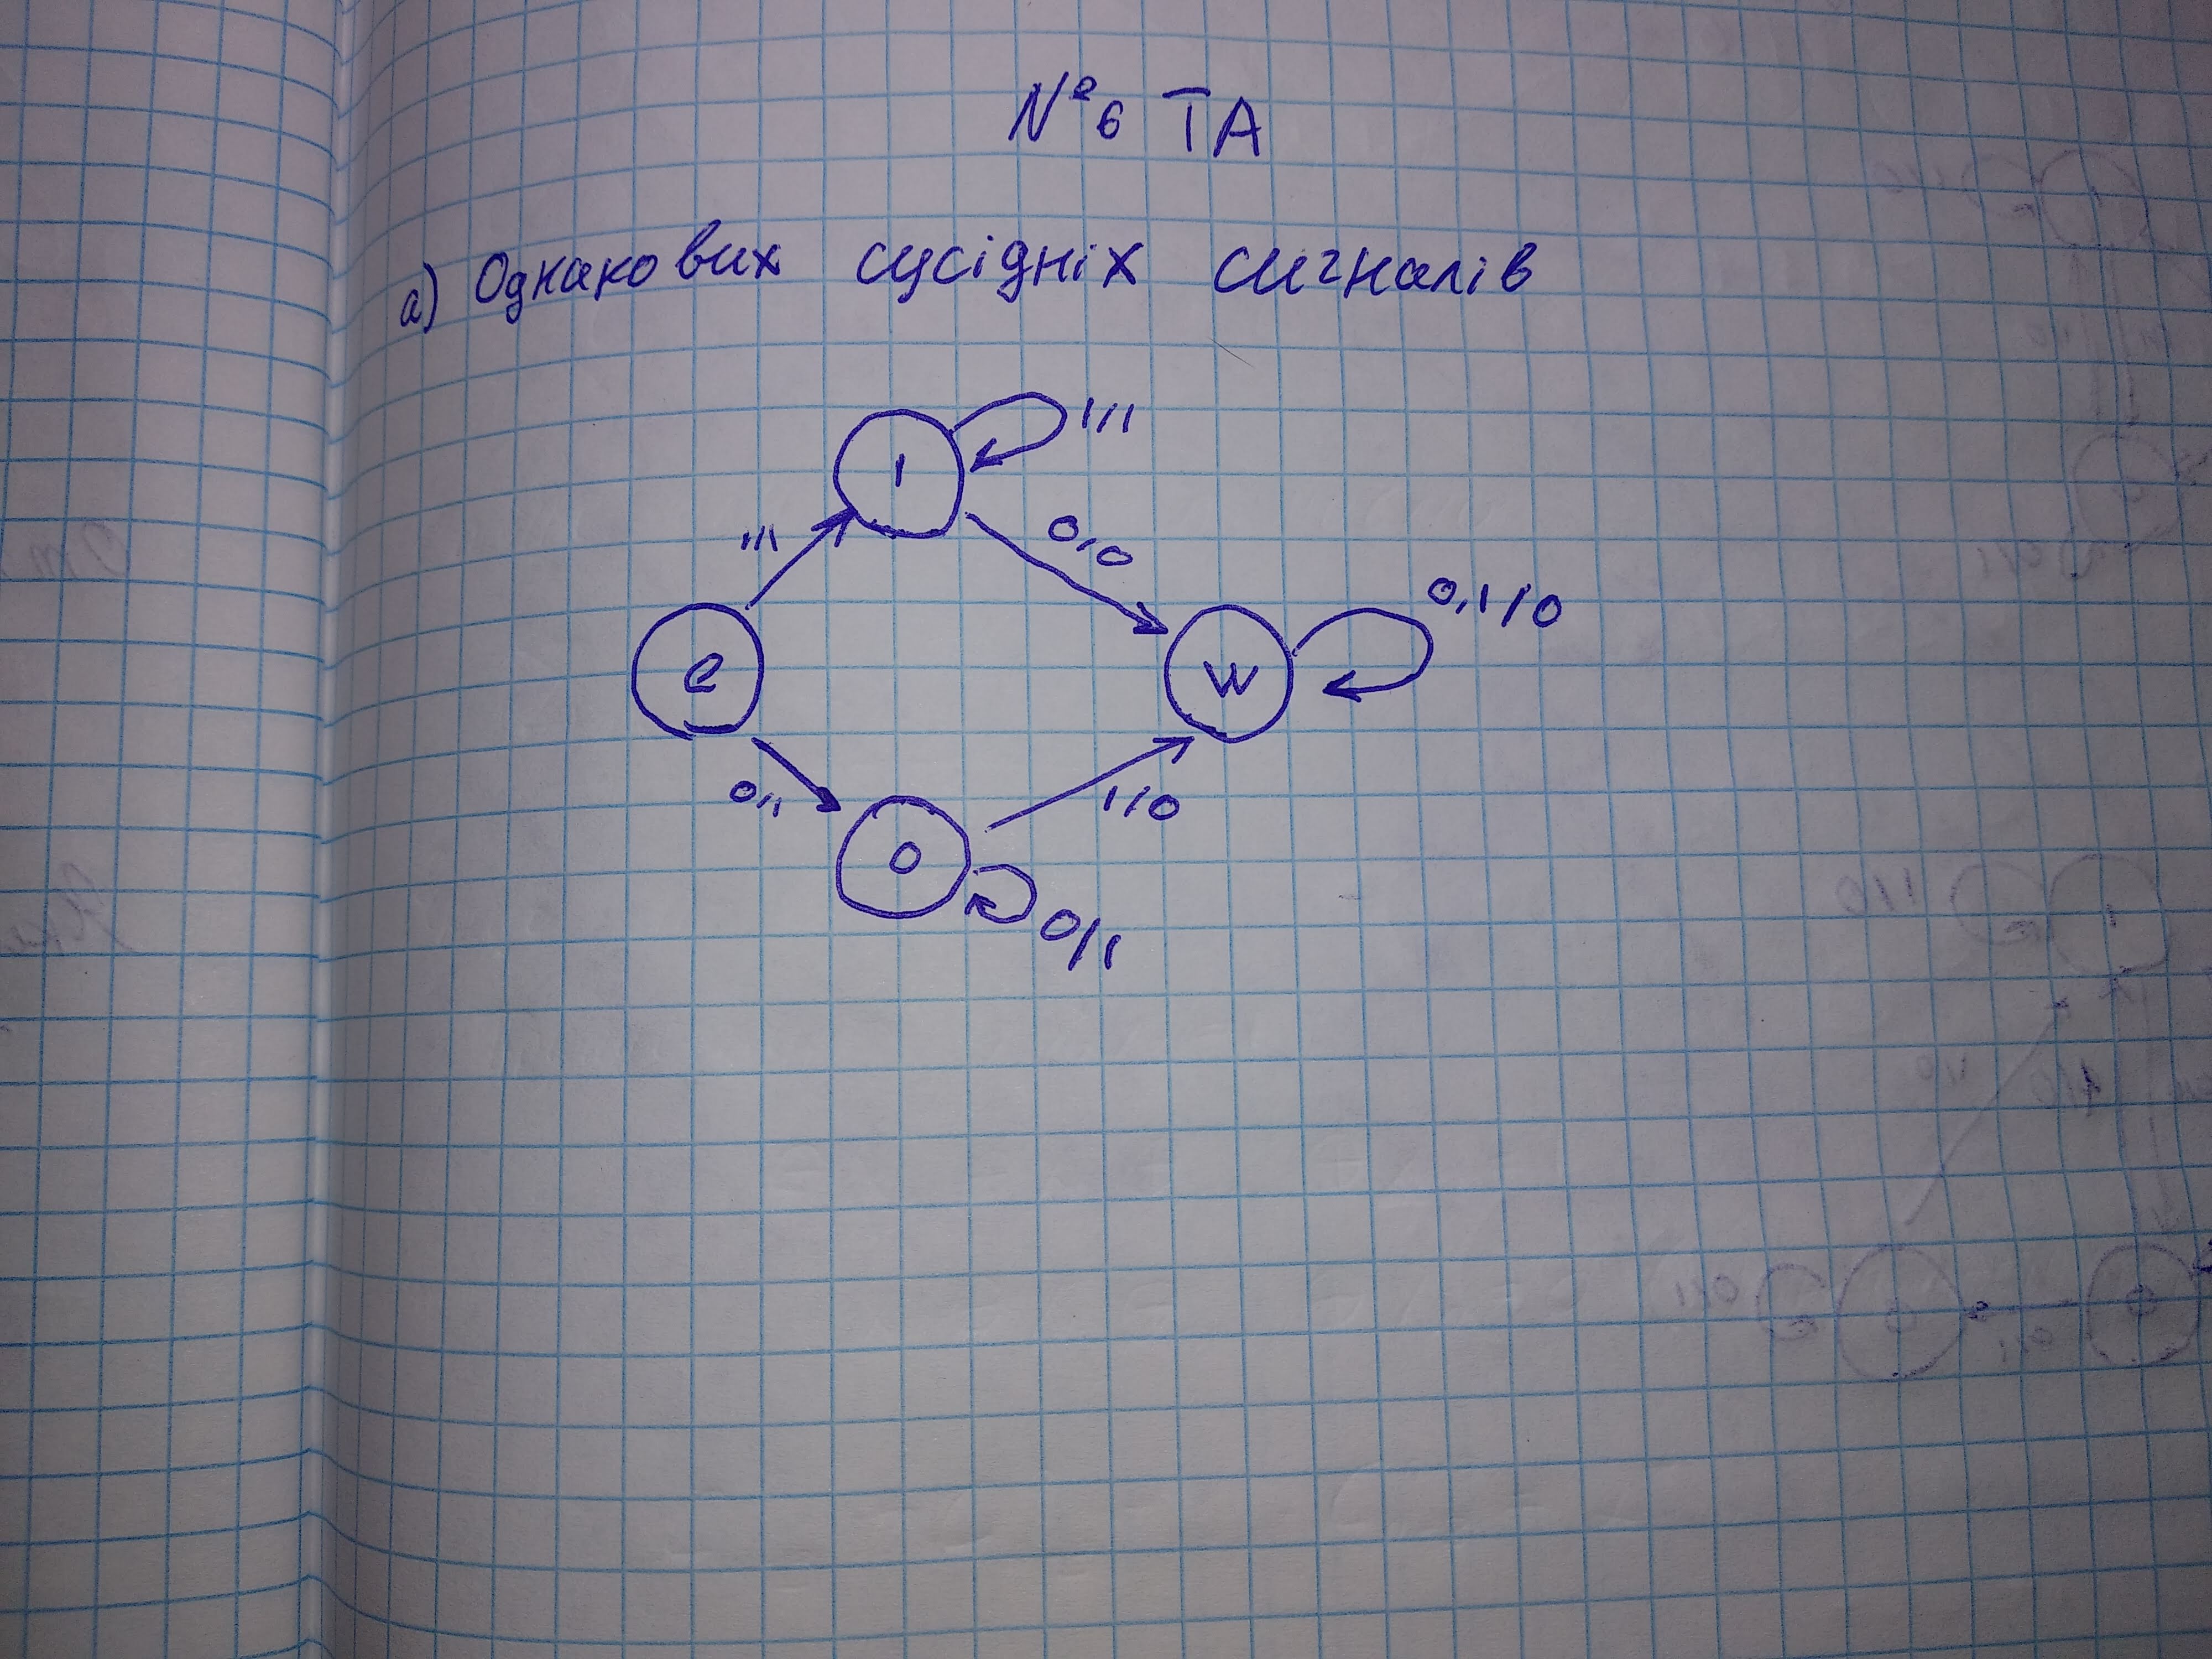 №6 ТА
а) Однакових сусідніх сигналів
1
1/1
1/1
0/0
e
w
0,1/0
0/1
1/0
0
0/1